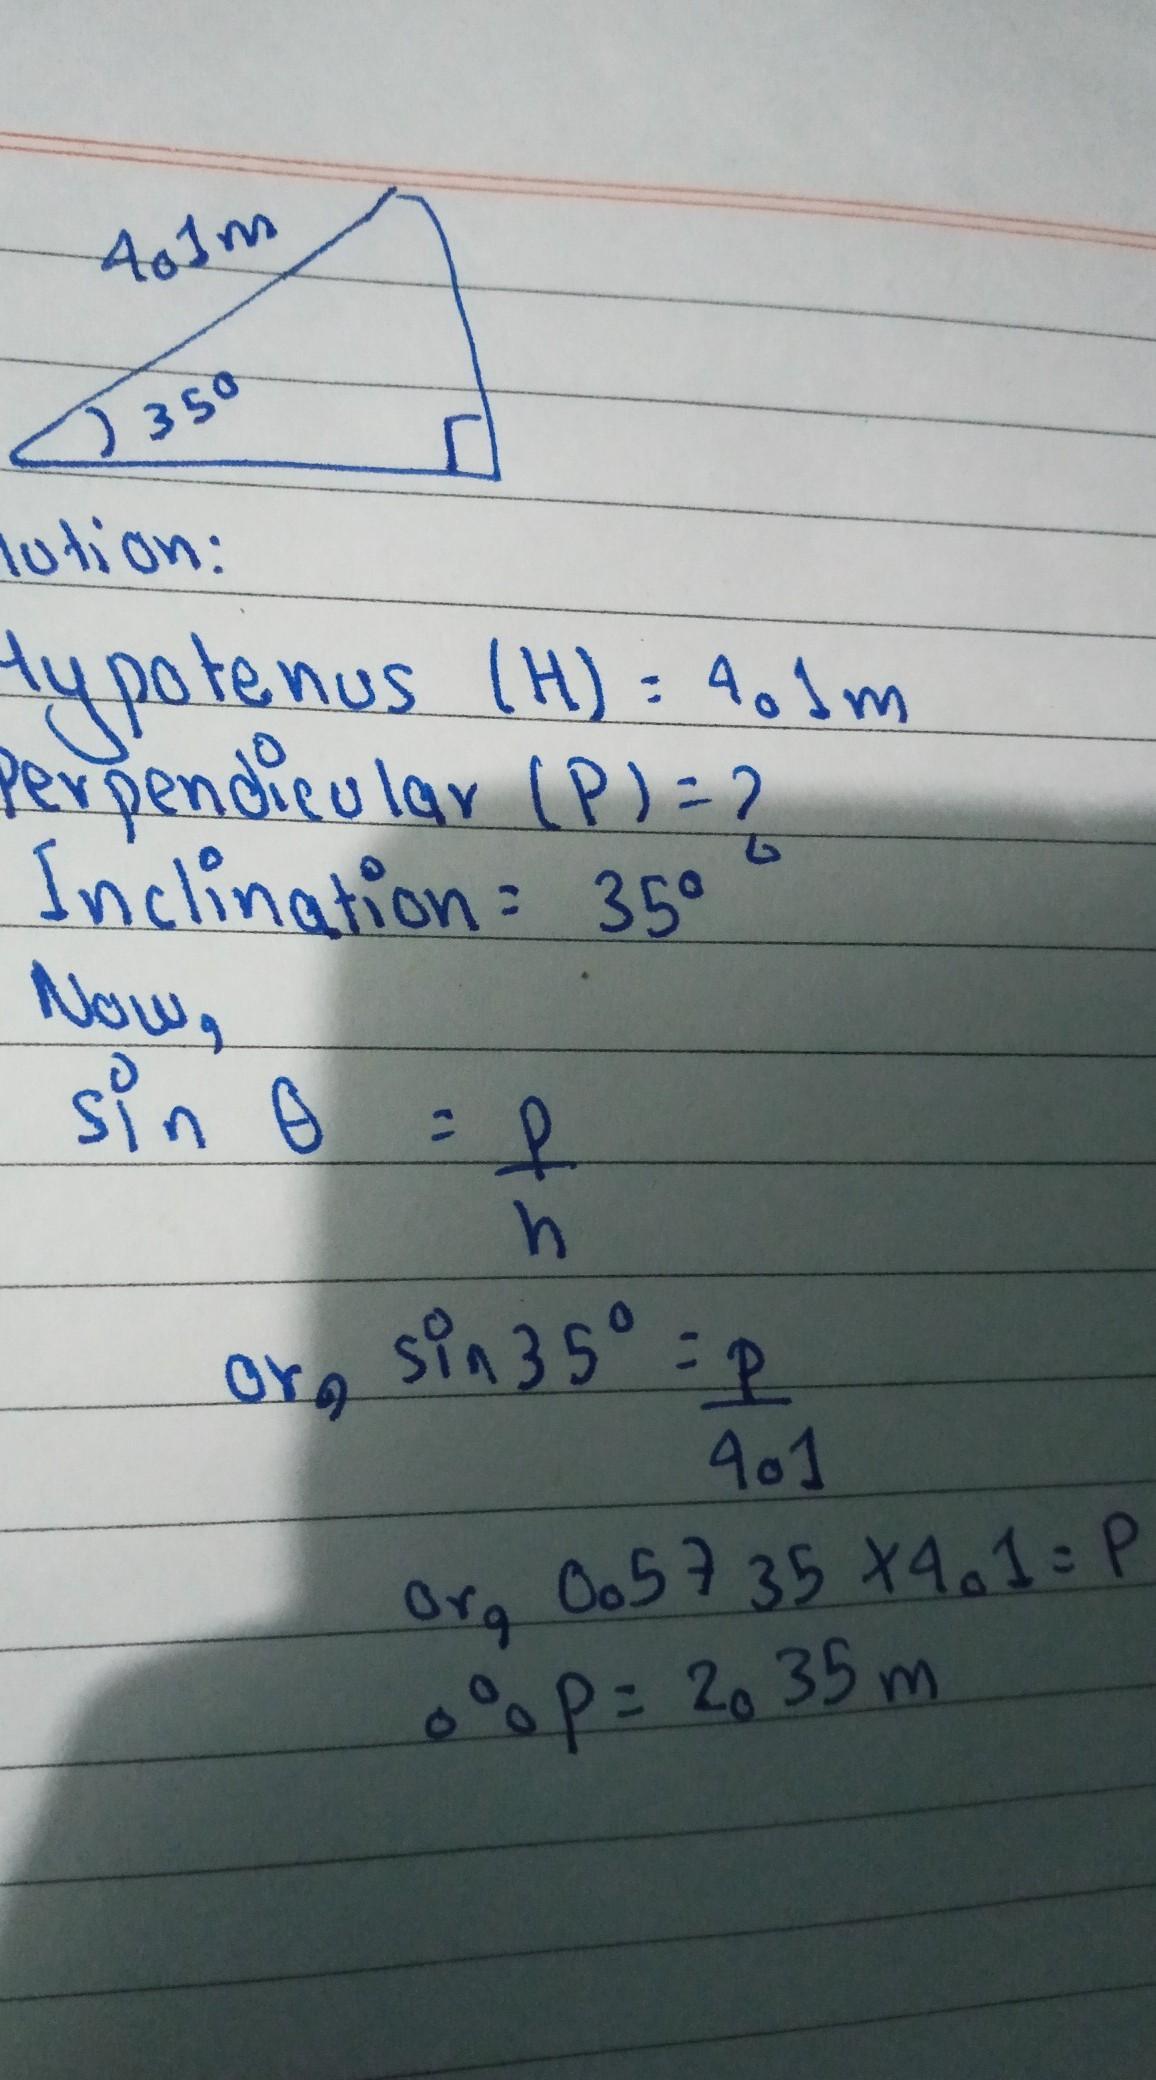 4.1m
35°
lution:
Hypotenus (H) = 4.1m
Perpendicular (P) = ?
Inclination = 35°
Now,
sin θ = p/h
or, sin35° = p/4.1
or, 0.5735 × 4.1 = P
∴ P = 2.35 m